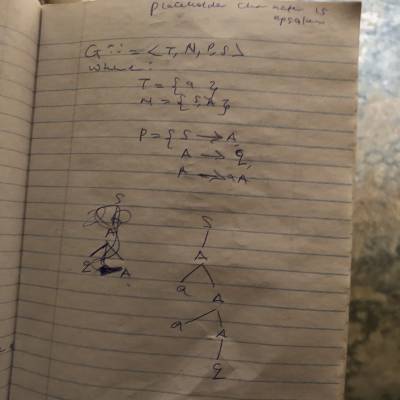 placeholder character is
epsilon
G ::= <T, N, P, S>
where:
T = {a},
N = {S, A},
P = {S → A,
A → q,
A → aA
S
A
q A
S
A
a A
a A
q